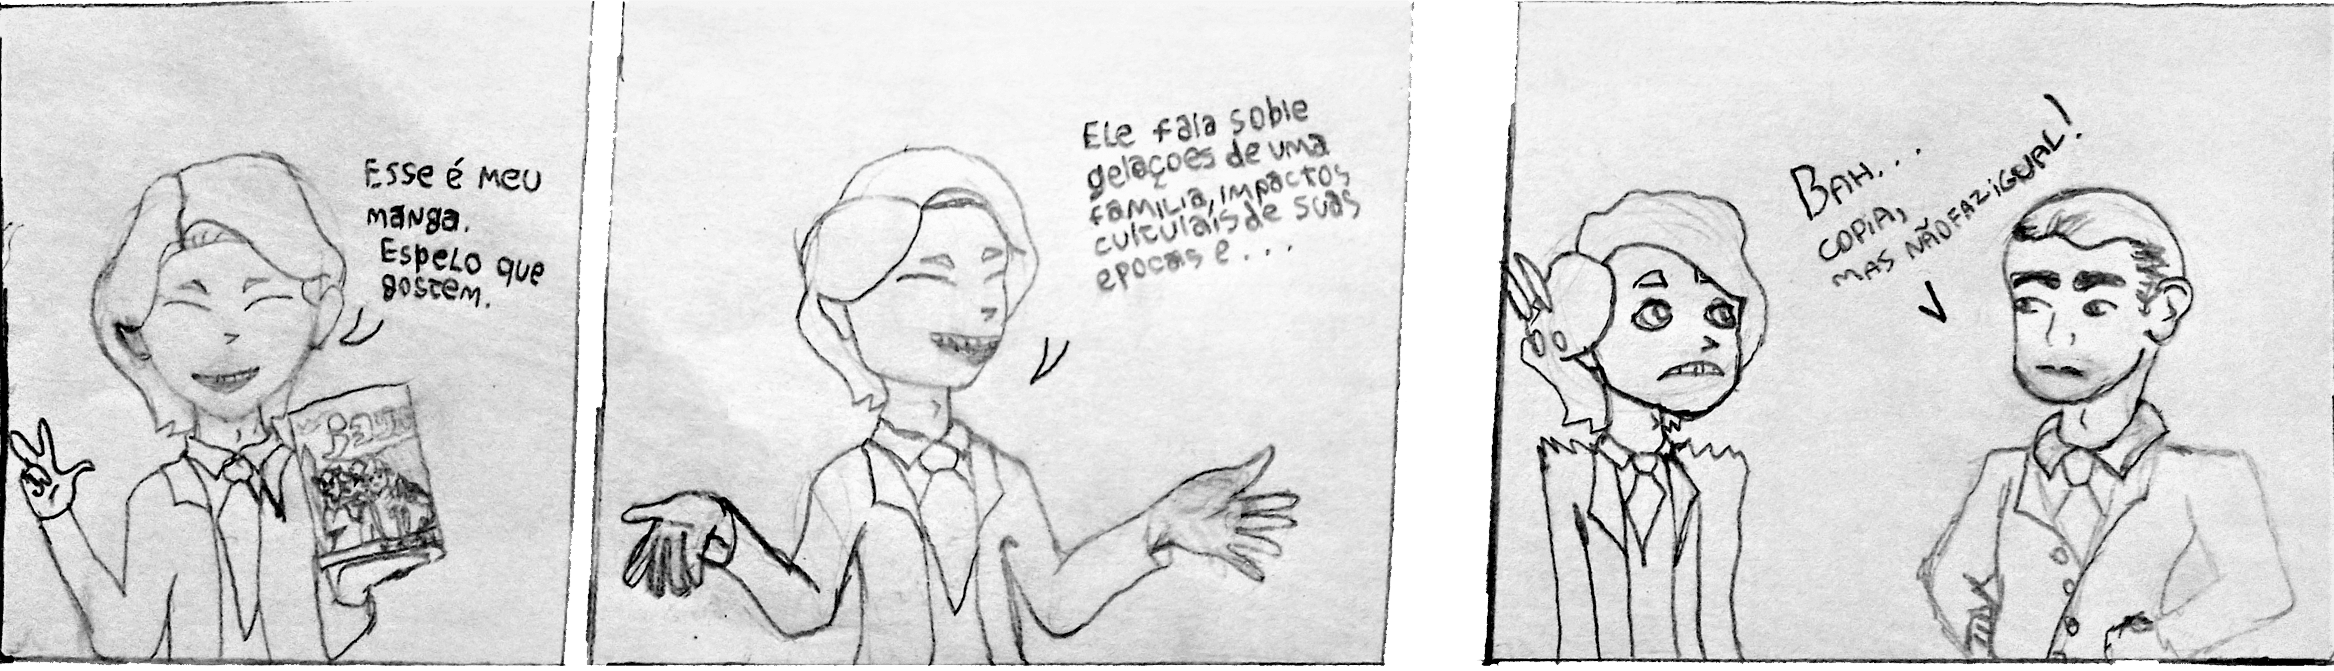 Esse é meu
manga.
Espelo que
gostem.
Ele fala soble
gelações de uma
familia, impactos
cultulais de suas
epocas e...
Bah...
copia,
mas não faz igual!